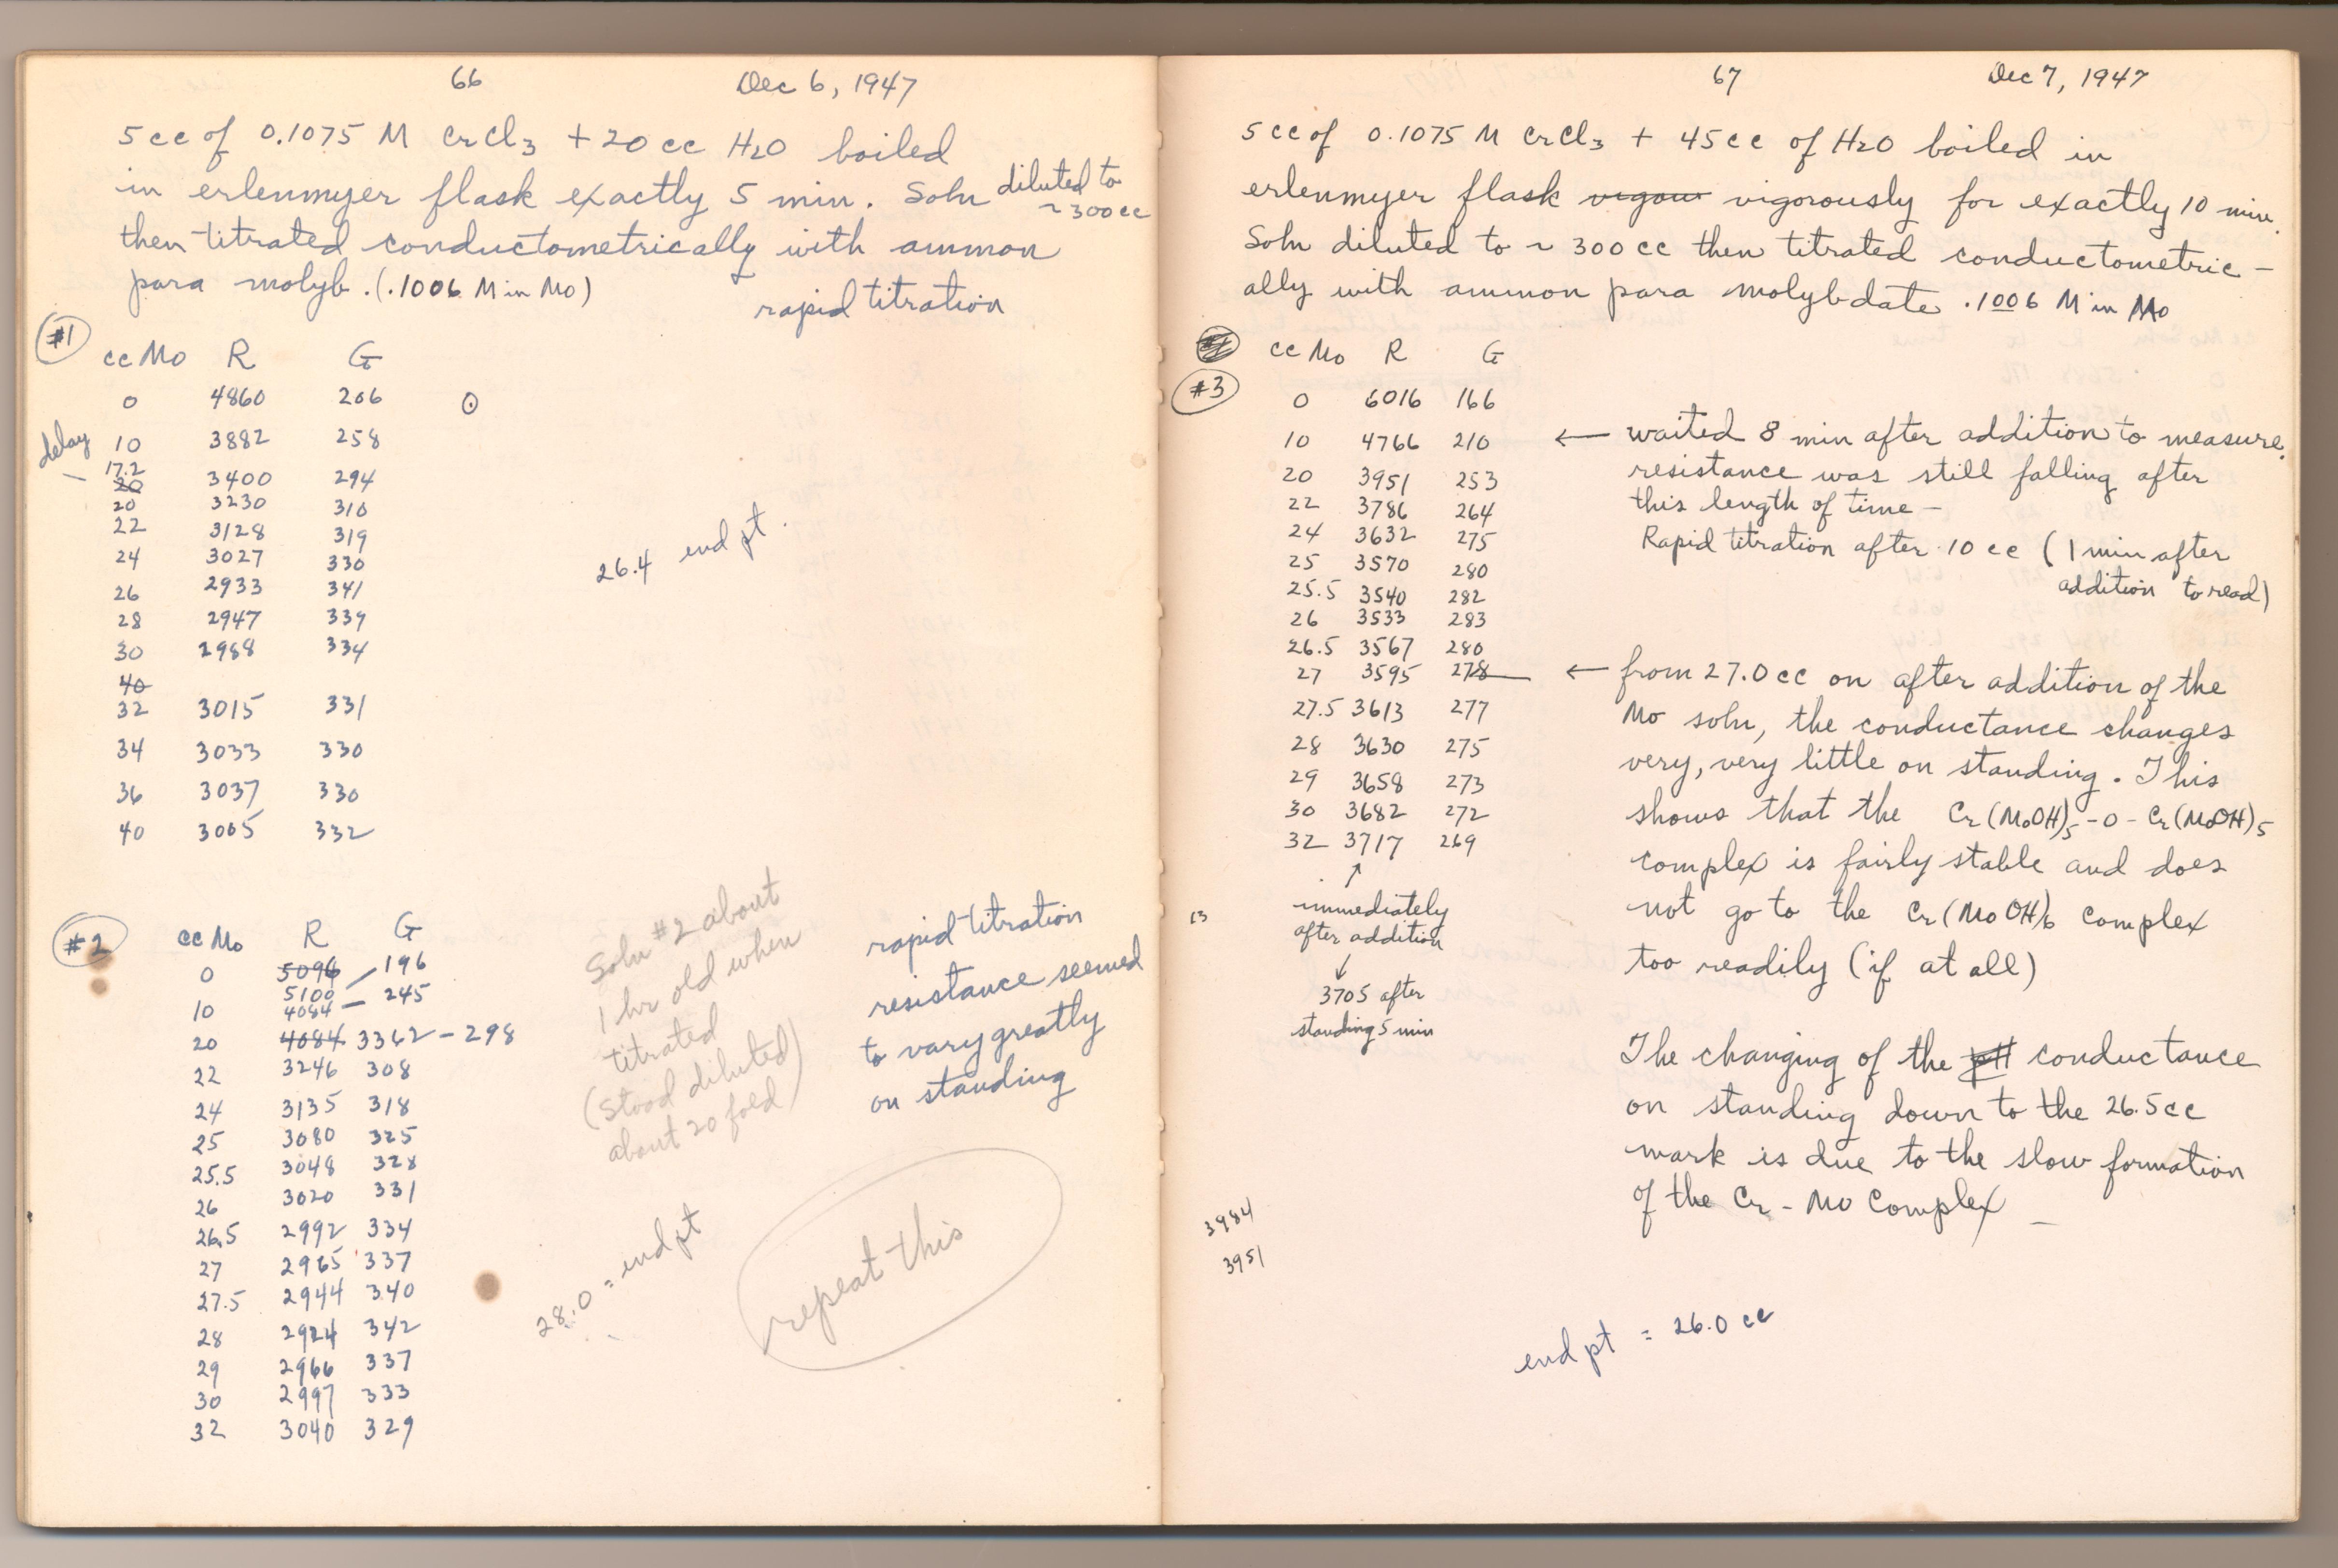 66 Dec 6, 1947
5 cc of 0.1075 M CrCl3 + 20 cc H2O boiled
in erlenmyer flask exactly 5 min. Soln diluted to ~300cc
then titrated conductometrically with ammon
para molyb. (.1006 M in Mo)
rapid titration
#1
cc Mo R G
0 4860 206
delay 10 3882 258
17.2 20 3400 294
20 3230 310
22 3128 319
24 3027 330
26 2933 341
28 2947 339
30 2988 334
40
32 3015 331
34 3033 330
36 3037 330
40 3005 332
26.4 end pt.
#2
cc Mo R G
0 5096 196
5100
10 4084 – 245
20 4084 3362 – 298
22 3246 308
24 3135 318
25 3080 325
25.5 3048 328
26 3020 331
26.5 2992 334
27 2965 337
27.5 2944 340
28 2924 342
29 2966 337
30 2997 333
32 3040 329
Soln #2 about
1 hr old when
titrated
(stood diluted)
about 20 fold)
rapid titration
resistance seemed
to vary greatly
on standing
28.0 = end pt
repeat this
67 Dec 7, 1947
5 cc of 0.1075 M CrCl3 + 45 cc of H2O boiled in
erlenmyer flask vigour vigorously for exactly 10 min.
Soln diluted to ~ 300 cc then titrated conductometric –
ally with ammon para molybdate .1006 M in Mo
#3
cc Mo R G
0 6016 166
10 4766 210
20 3951 253
22 3786 264
24 3632 275
25 3570 280
25.5 3540 282
26 3533 283
26.5 3567 280
27 3595 278
27.5 3613 277
28 3630 275
29 3658 273
30 3682 272
32 3717 269
↑
immediately
after addition
↓
3705 after
standing 5 min
13
3984
3951
← waited 8 min after addition to measure.
resistance was still falling after
this length of time –
Rapid titration after 10 cc (1 min after
addition to read)
← from 27.0 cc on after addition of the
Mo soln, the conductance changes
very, very little on standing. This
shows that the Cr(MoOH)5 - O - Cr(MoOH)5
complex is fairly stable and does
not go to the Cr(MoOH)6 complex
too readily (if at all)
The changing of the pH conductance
on standing down to the 26.5 cc
mark is due to the slow formation
of the Cr - Mo Complex –
end pt = 26.0 cc